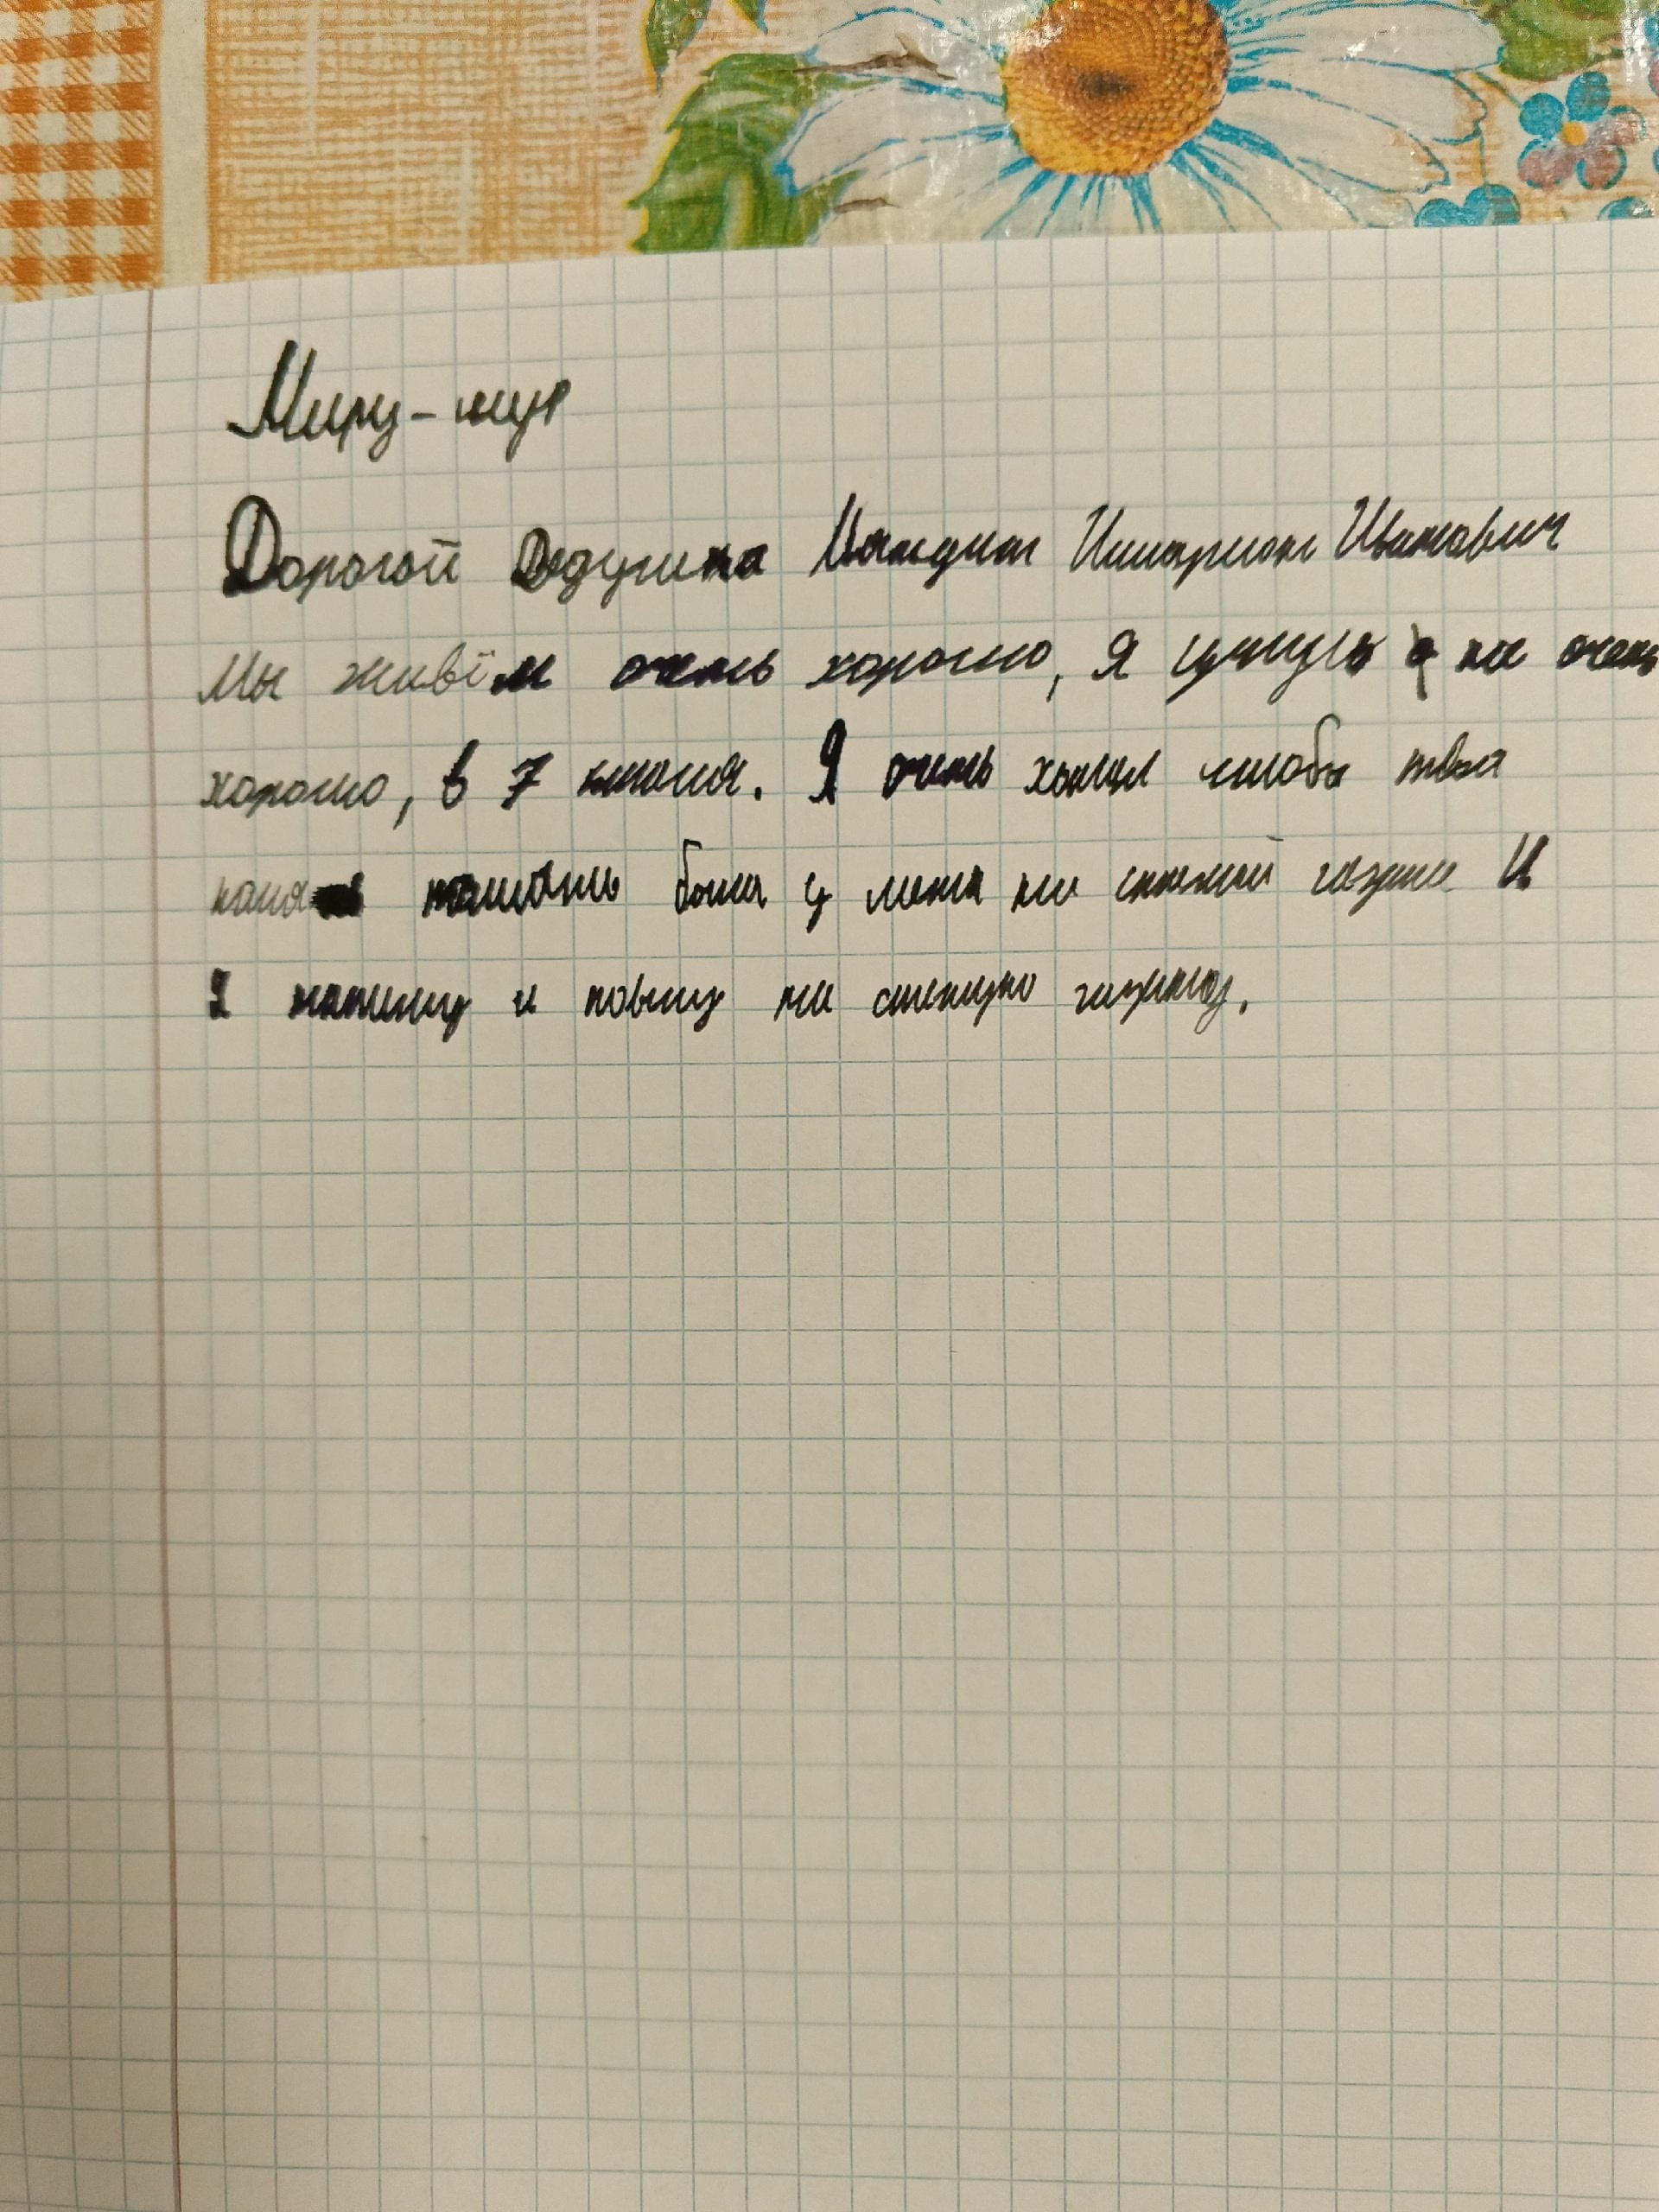 Миру-мир
Дорогой Дедушка Илларион Иванович
Мы живём очень хорошо, я учусь не очень
хорошо, в 7 классе. Я очень хотел чтобы твоя
была у меня на газете И
я напишу и на стенную газету.